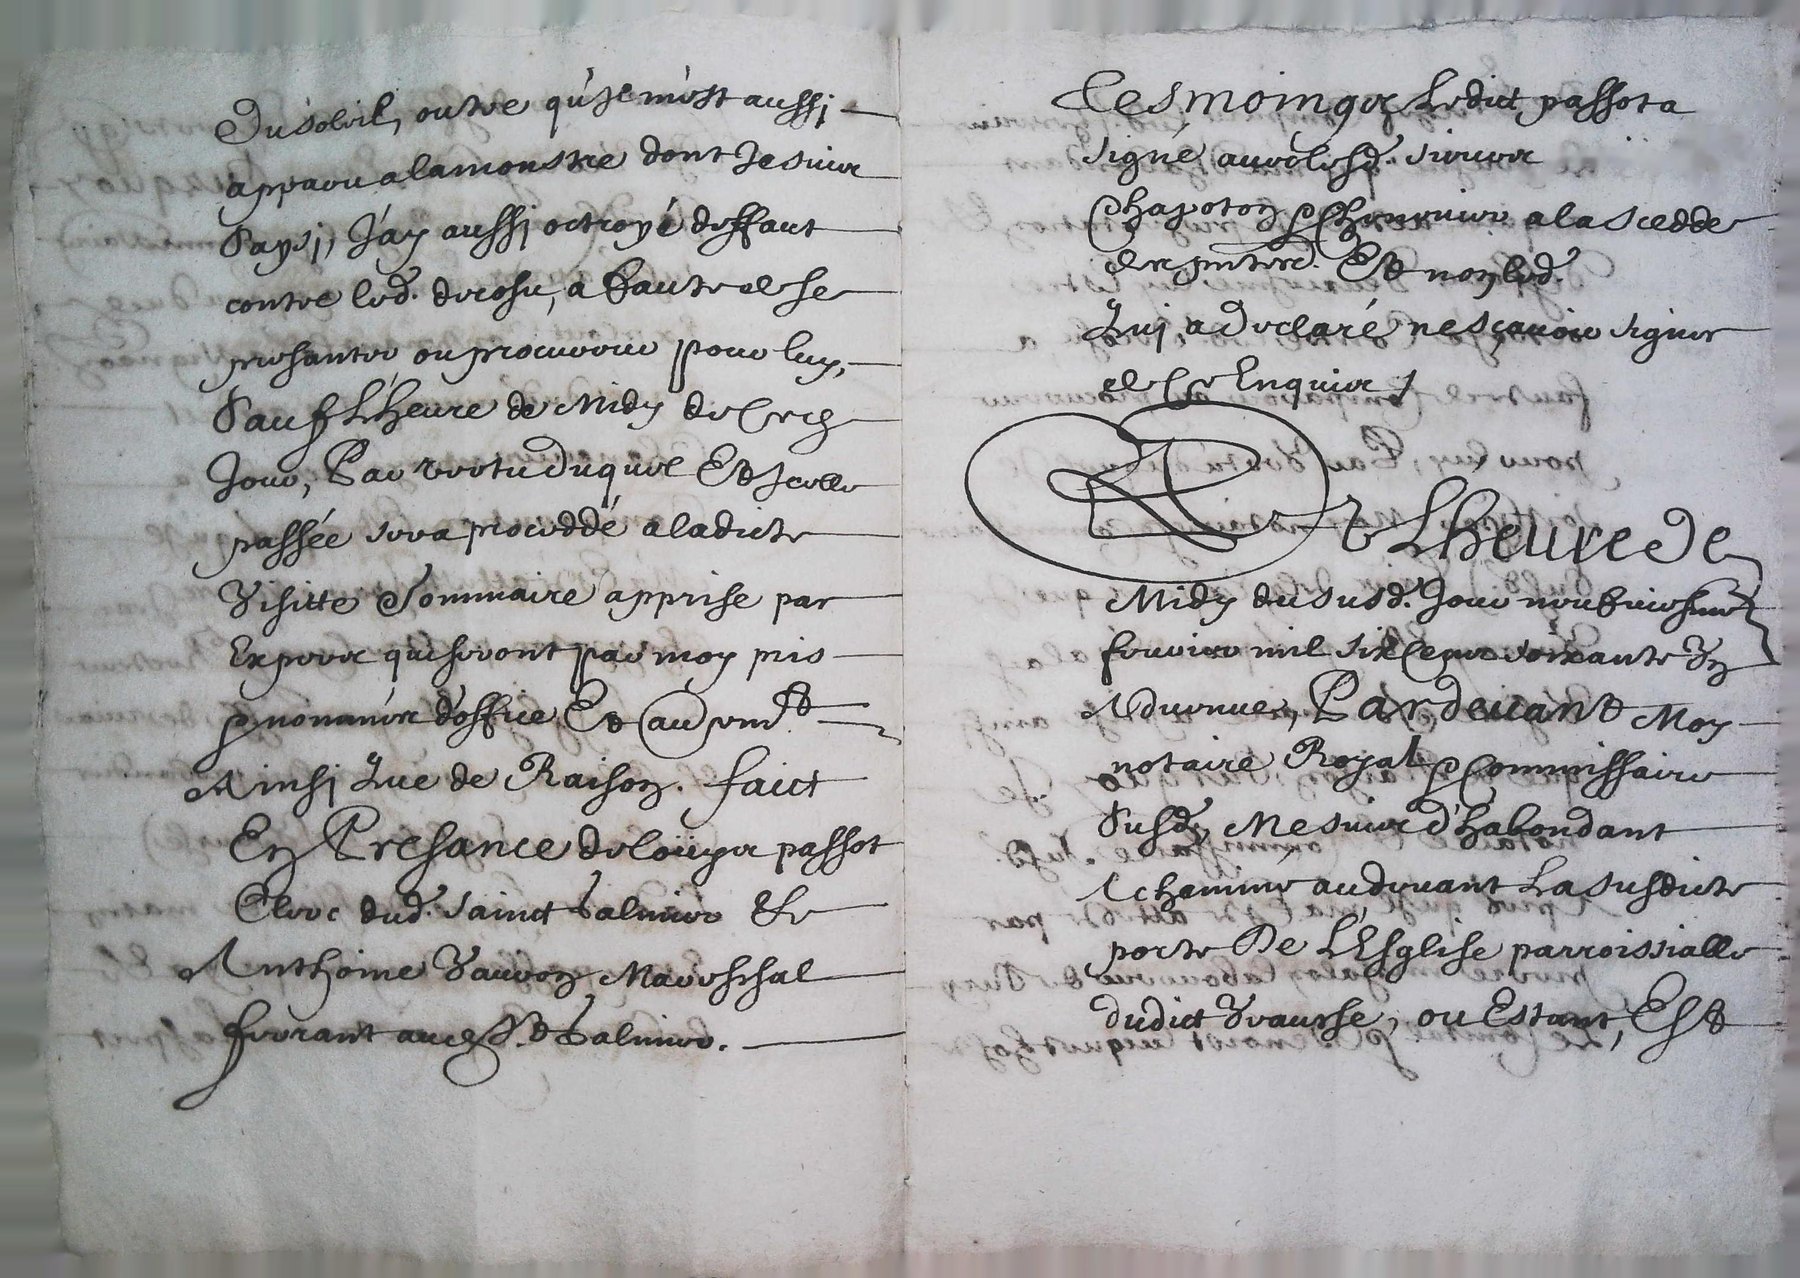 Du soleil, outre qu'Il m'est aussi
apparu a la monstre dont Je suis
Saysi, J'ay aussi octroyé deffaut
contre led. decosu, a faute de se
presanter ou procureur pour luy,
Sauf L'heure de Midy de Ce
Jour, Par vertu duquel Et Icelle
passée sera proceddé a la dicte
Visitte Sommaire apprise par
Expers qui seront par moy pris
& nommés d'office Et au
Ainsi Que de Raison. faict
En Presance de passot
Clerc dud. Sainct Galmier & Le
Anthoine Vauron Mareschal
ferrant aud. St Galmier.
Tesmoings Ledict passot a
signé avec lesd. sieurs
Chapoton & a la scedde
des presentes. Et non led.
Qui a declaré ne sçavoir signer
de Ce Enquis /
Et L'heure de
Midy du susd. Jour neufviesme
fevrier mil six Cens soixante Un
Advenue, Pardevant Moy
notaire Royal & Commissaire
Susd., Me suis d'habondant
Achemine au devant La susdicte
porte De L'Esglise parroissialle
dudict Veausse, ou Estant, Est